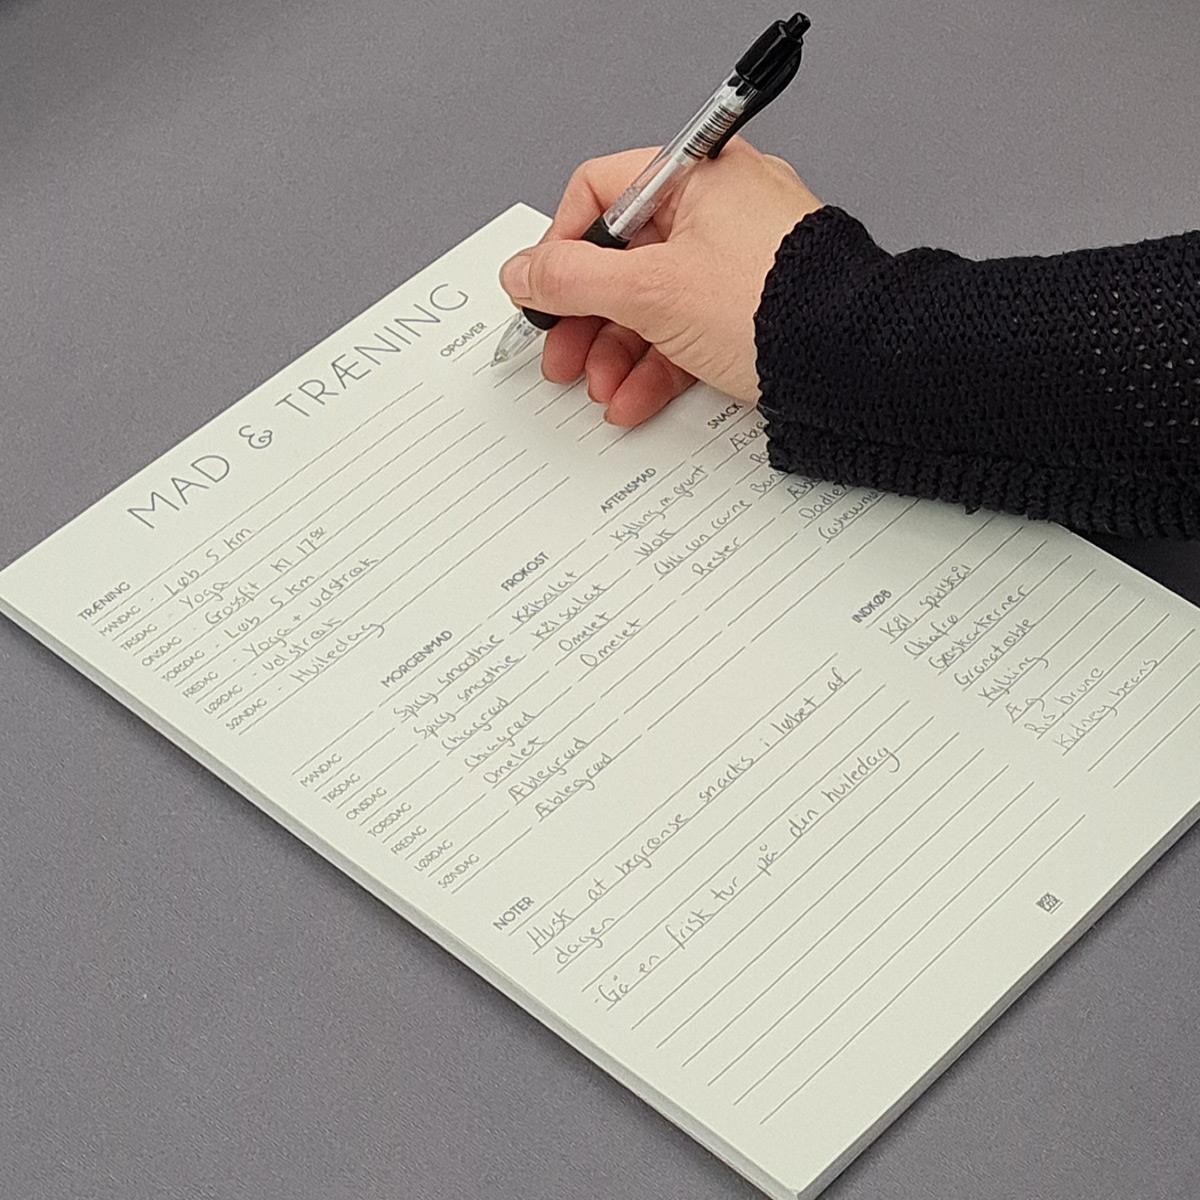 MAD & TRÆNING
OPGAVER
TRÆNING
MANDAG - Løb 5 km
TIRSDAG - Yoga
ONSDAG - Crossfit Kl 17⁰⁰
TORSDAG - Løb 5 km
FREDAG - Yoga + udstræk
LØRDAG - udstræk
SØNDAG - Huiledag
MORGENMAD FROKOST AFTENSMAD SNACK
MANDAG Spicy smoothie Kålsalat Kylling m. grønt
TIRSDAG Spicy smoothie Kål salat Wok
ONSDAG Chiagrød Omelet Chili con carne
TORSDAG Chiagrød Omelet Rester
FREDAG Omelet
LØRDAG Æblegrød
SØNDAG Æblegrød
INDKØB
Kål, spidskål
Chiafrø
Græskarkerner
Granatæble
Kylling
Æg
Ris brune
Kidneybeans
NOTER
Husk at begrænse snacks i løbet af
dagen
- Gå en frisk tur på din huiledag